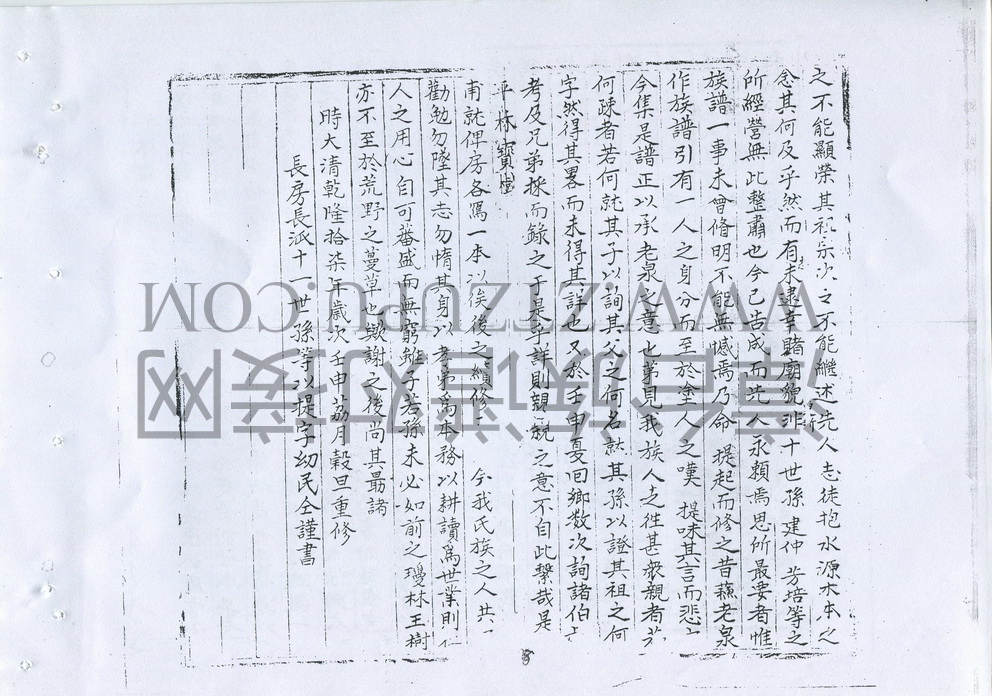 之不能顯榮其祖宗次之不能繼述先人志徒抱水源木本之
念其何及乎然而有未逮幸睹廟貌非十世孫建仲 芳培等之
所經營無此整肅也今已告成而先人永賴焉思所最要者惟
族譜一事未曾脩明不能無憾焉乃命 提起而修之昔蘇老泉
作族譜引有一人之身分而至於塗人之嘆 提味其言而悲之
今集是譜正以承老泉之意也第見我族人之往甚衆親者
何疎者若何就其子以詢其父之何名就其孫以證其祖之何
字然得其畧而未得其詳也又於壬申憂回鄉数次詢諸伯
考及兄弟採而錄之于是乎詳則親親之意不自此繫哉是
平林寶
甫就俾房各爲一本以俟後之續修 今我氏族之人共
勸勉勿墜其志勿惰其身以孝弟爲本務以耕讀爲世業則
人之用心自可蕃盛而無窮雖子若孫未必如前之瓊林玉樹
亦不至於荒野之蔓草也歟謝之後尚其勗諸
時大清乾隆拾柒年歲次壬申荔月穀旦重修
長房長派十一世孫等以提字幼民仝謹書
WWW.ZTZUPU.COM
8